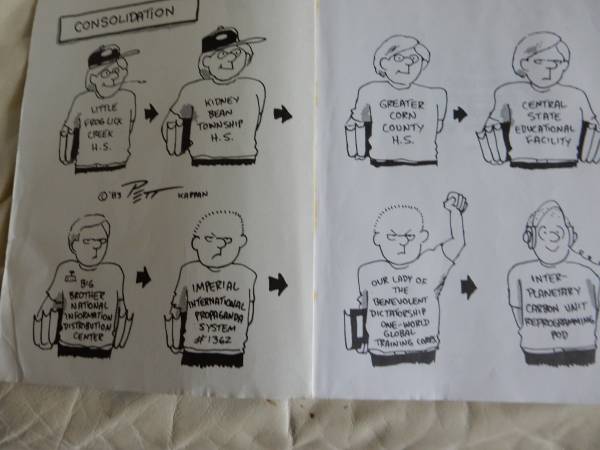 CONSOLIDATION
LITTLE
FROG LICK
CREEK
H.S.
KIDNEY
BEAN
TOWNSHIP
H.S.
GREATER
CORN
COUNTY
H.S.
CENTRAL
STATE
EDUCATIONAL
FACILITY
© '83 PETT KAPPAN
BIG
BROTHER
NATIONAL
INFORMATION
DISTRIBUTION
CENTER
IMPERIAL
INTERNATIONAL
PROPAGANDA
SYSTEM
#1362
OUR LADY OF
THE
BENEVOLENT
DICTATORSHIP
ONE-WORLD
GLOBAL
TRAINING CORPS
INTER-
PLANETARY
CARBON UNIT
REPROGRAMMING
POD